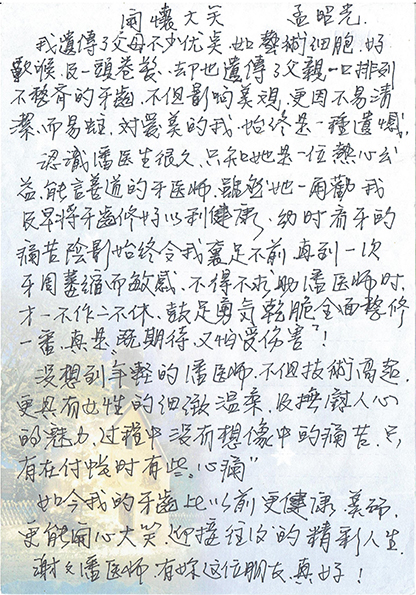 開懷大笑 孟昭光.
我遺傳了父母不少优点,如藝術細胞、好
歌喉、及一頭卷髮、却也遺傳了父親一口排列
不整齊的牙齒,不但影响美觀,更因不易清
潔,而易蛀,对爱美的我,始終是一種遺憾。
認識潘医生很久,只知她是一位熱心公
益,能言善道的牙医师,雖然她一再勸我
及早將牙齒修好以利健康,幼时看牙的
痛苦陰影始終令我裹足不前,直到一次
牙周萎縮而敏感、不得不求助潘医师时,
才一不作二不休、鼓足勇気乾脆全面整修
一番,真是“既期待、又怕受伤害”!
沒想到年輕的潘医师,不但技術高超,
更具有女性的细緻温柔,及撫慰人心
的魅力,过程中沒有想像中的痛苦、只
有在付帳时有些“心痛”
如今我的牙齒比以前更健康、美丽,
更能開心大笑,迎接往后的精彩人生
謝々潘医师,有妳这位朋友,真好!